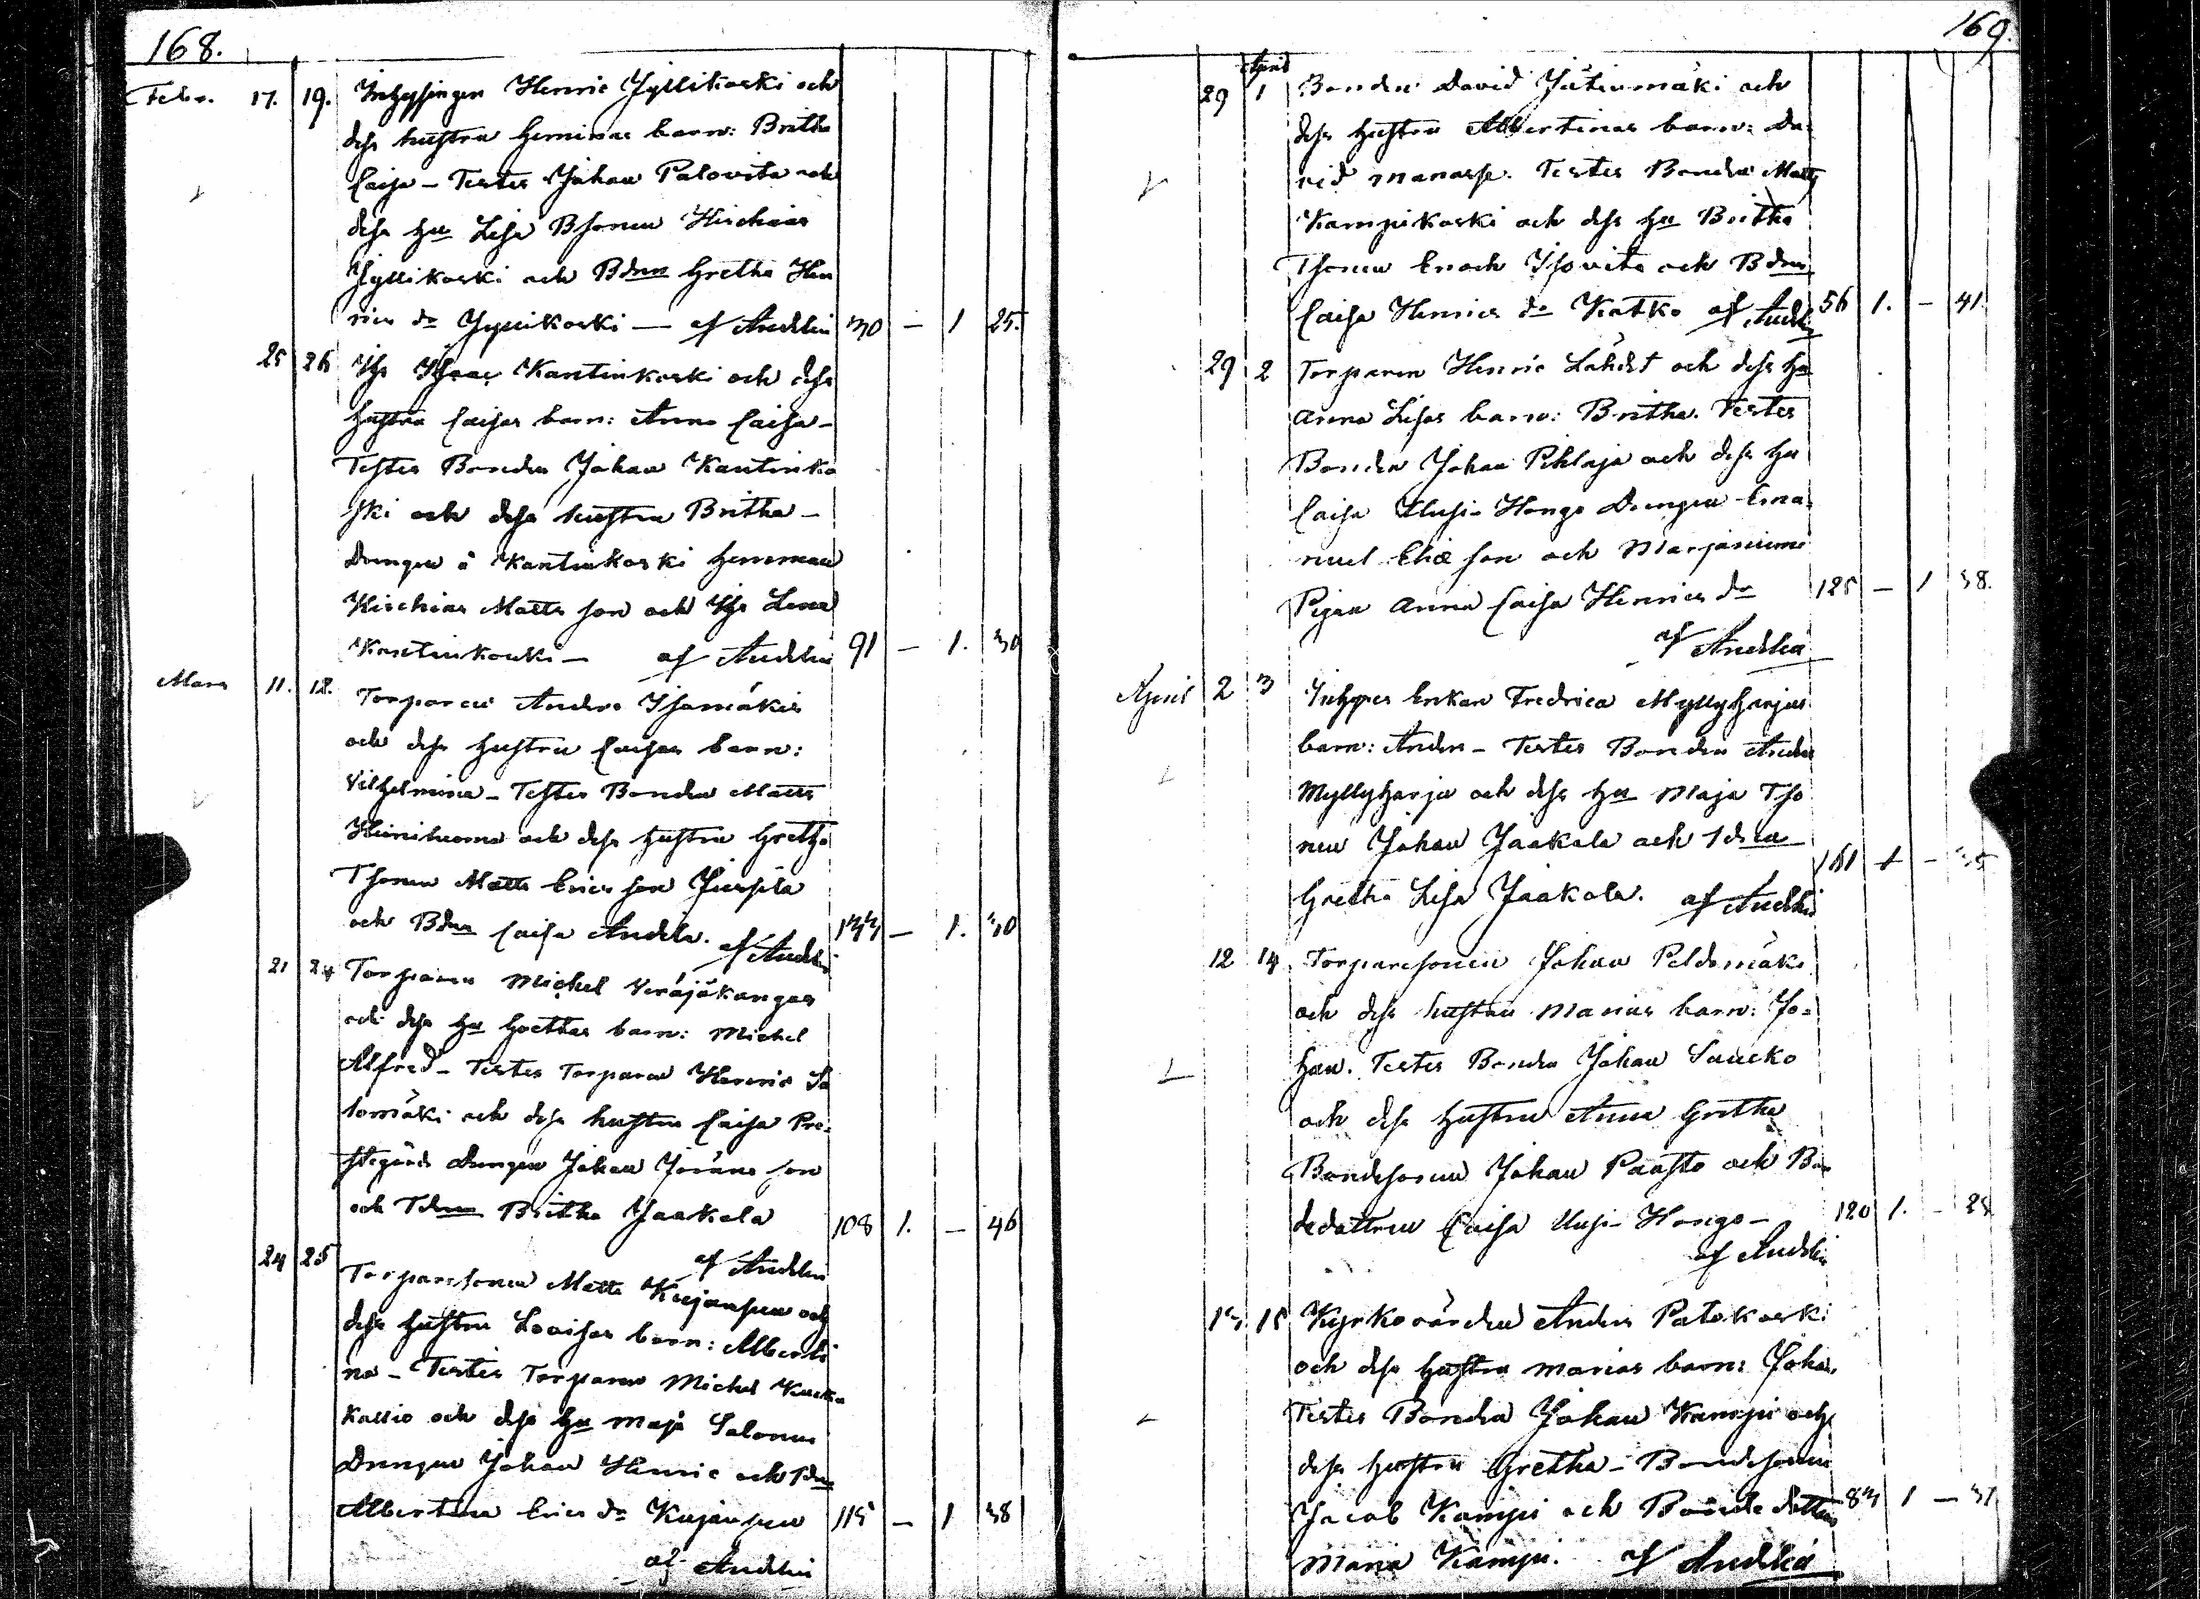 168.
Febr. 17. 19. Inhysingen Henric Jyllikoski och
dess hustru Herminas barn: Britha
Caisa – Testes Johan Palovita och
dess hu Lisa Bsonen Hischias
Jyllikoski och Bdrn Gretha Hen
rics dr Jyllikoski — af Andelin 30 – 1 25.
25 26 Ihs Isaac Kantinkoski och dess
hustru Caisas barn: Anna Caisa –
Testes Bonden Johan Kantinko
ski och dess hustru Britha –
Drengen å Kantinkoski hemman
Hischias Matts son och Ihs Lena
Kantinkoski – af Andelin 91 – 1. 30
Mars 11. 12. Torparen Anders Isomäkis
och dess hustru Caisas barn:
Vilhelmina – Testes Bonden Matts
Heiniluoma och dess hustru Gretha
Tsonen Matts Erics son
och Bdrn Caisa Andela. af Andelin 133 – 1. 30
21 24 Torparen Michel Veräjäkangas
och dess hu Grethas barn: Michel
Alfred – Testes Torparen Henric Sa
lomäki och dess hustru Caisa Pre-
stegårds Drengen Johan Jörans son
och Tdrn Britha Jaakola 108 1. – 46
af Andelin
24 25 Torparesonen Matts Kujanpää och
dess hustru Lovisas barn: Alberti
na – Testes Torparen Michel
Kallio och dess hu Maja Salomo
Drengen Johan Henric och Tdrn
Albertina Erics dr Kujanpää 115 – 1 38
af Andelin
169.
April
29 1 Bonden David Jätinmäki och
dess hustru Albertinas barn: Da-
vid Manasse. Testes Bonden Matts
Kampikoski och dess hu Britha
Tsonen Enoch Isovita och Bdrn
Caisa Henrics dr Katko af Andelin 56 1. – 41
29 2 Torparen Henric Lähdet och dess hu
Anna Lisas barn: Britha. Testes
Bonden Johan Pihlaja och dess hu
Caisa Uusi-Hongo Drengen Ema-
nuel Eliæ son och Marjaniemi
Pigan Anna Caisa Henrics dr 125 – 1 38.
af Andelin
April 2 3 Inhyses Enkan Fredrica Myllyharjus
barn: Anders – Testes Bonden Anders
Myllyharju och dess hu Maja Tso
nen Johan Jaakola och Tdren
Gretha Lisa Jaakola. af Andelin 161 1 –
12 14 Torparesonen Johan Peldomäki
och dess hustru Marias barn: Jo-
han. Testes Bonden Johan Saucko
och dess hustru Anna Gretha
Bondesonen Johan Paasto och Bon
dedottren Caisa Uusi-Hongo – 120 1. – 28
af Andelin
13 15 Kyrkovärden Anders Patokoski
och dess hustru Marias barn: Johan.
Testes Bonden Johan Kampi och
dess hustru Gretha – Bondesonen
Jacob Kampi och Bonde dottren 83 1 – 31
Maria Kampi. af Andelin